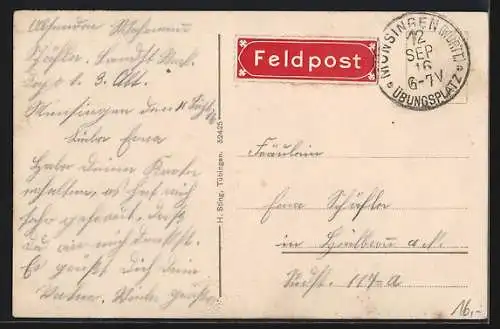 Absender Wehrmann
Schäfler. Landst. Batl.
3. Abt.
Münsingen den 11 Sept. 16
Liebe Erna
Habe Deine Karte
erhalten, es hat mich
sehr gefreut, daß
du an mich denkst.
Es grüßt dich dein
Vater. Viele Grüße
H. Sting, Tübingen. 32425
Feldpost
MÜNSINGEN (WÜRTT.)
12
SEP
16
6-7V
ÜBUNGSPLATZ
Fräulein
Erna Schäfler
in Heilbronn a. N.
Südst. 117 a
16,-